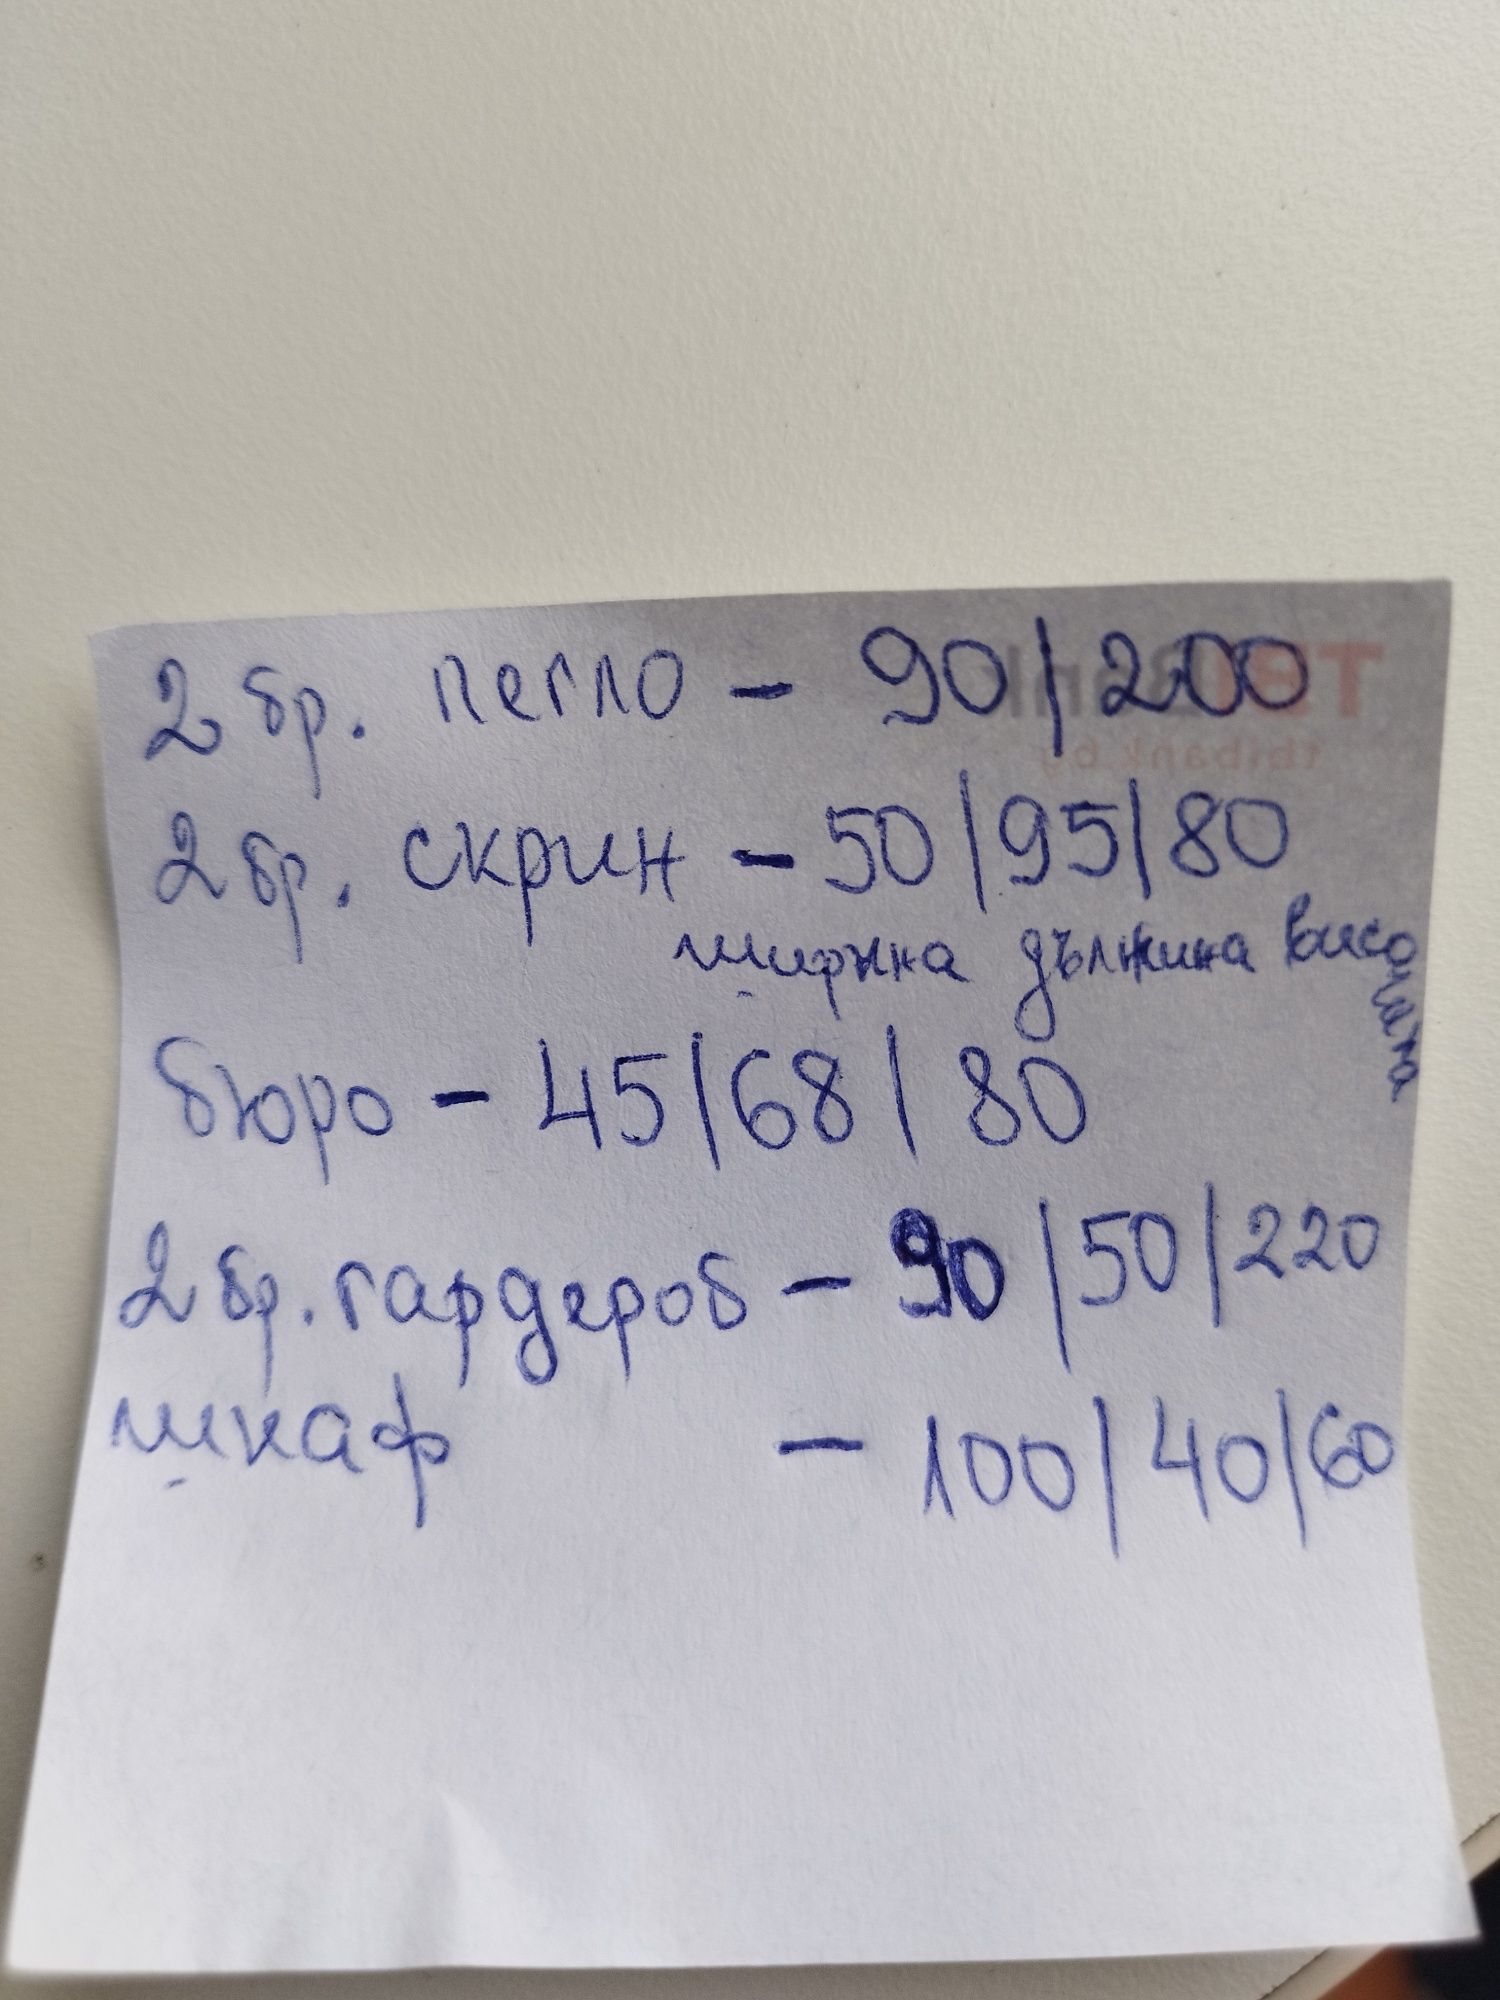 2 бр. легло - 90/200
2 бр. скрин - 50/95/80
ширина дължина височина
бюро - 45/68/80
2 бр. гардероб - 90/50/220
шкаф - 100/40/60
TBI Bank
tbibank.bg